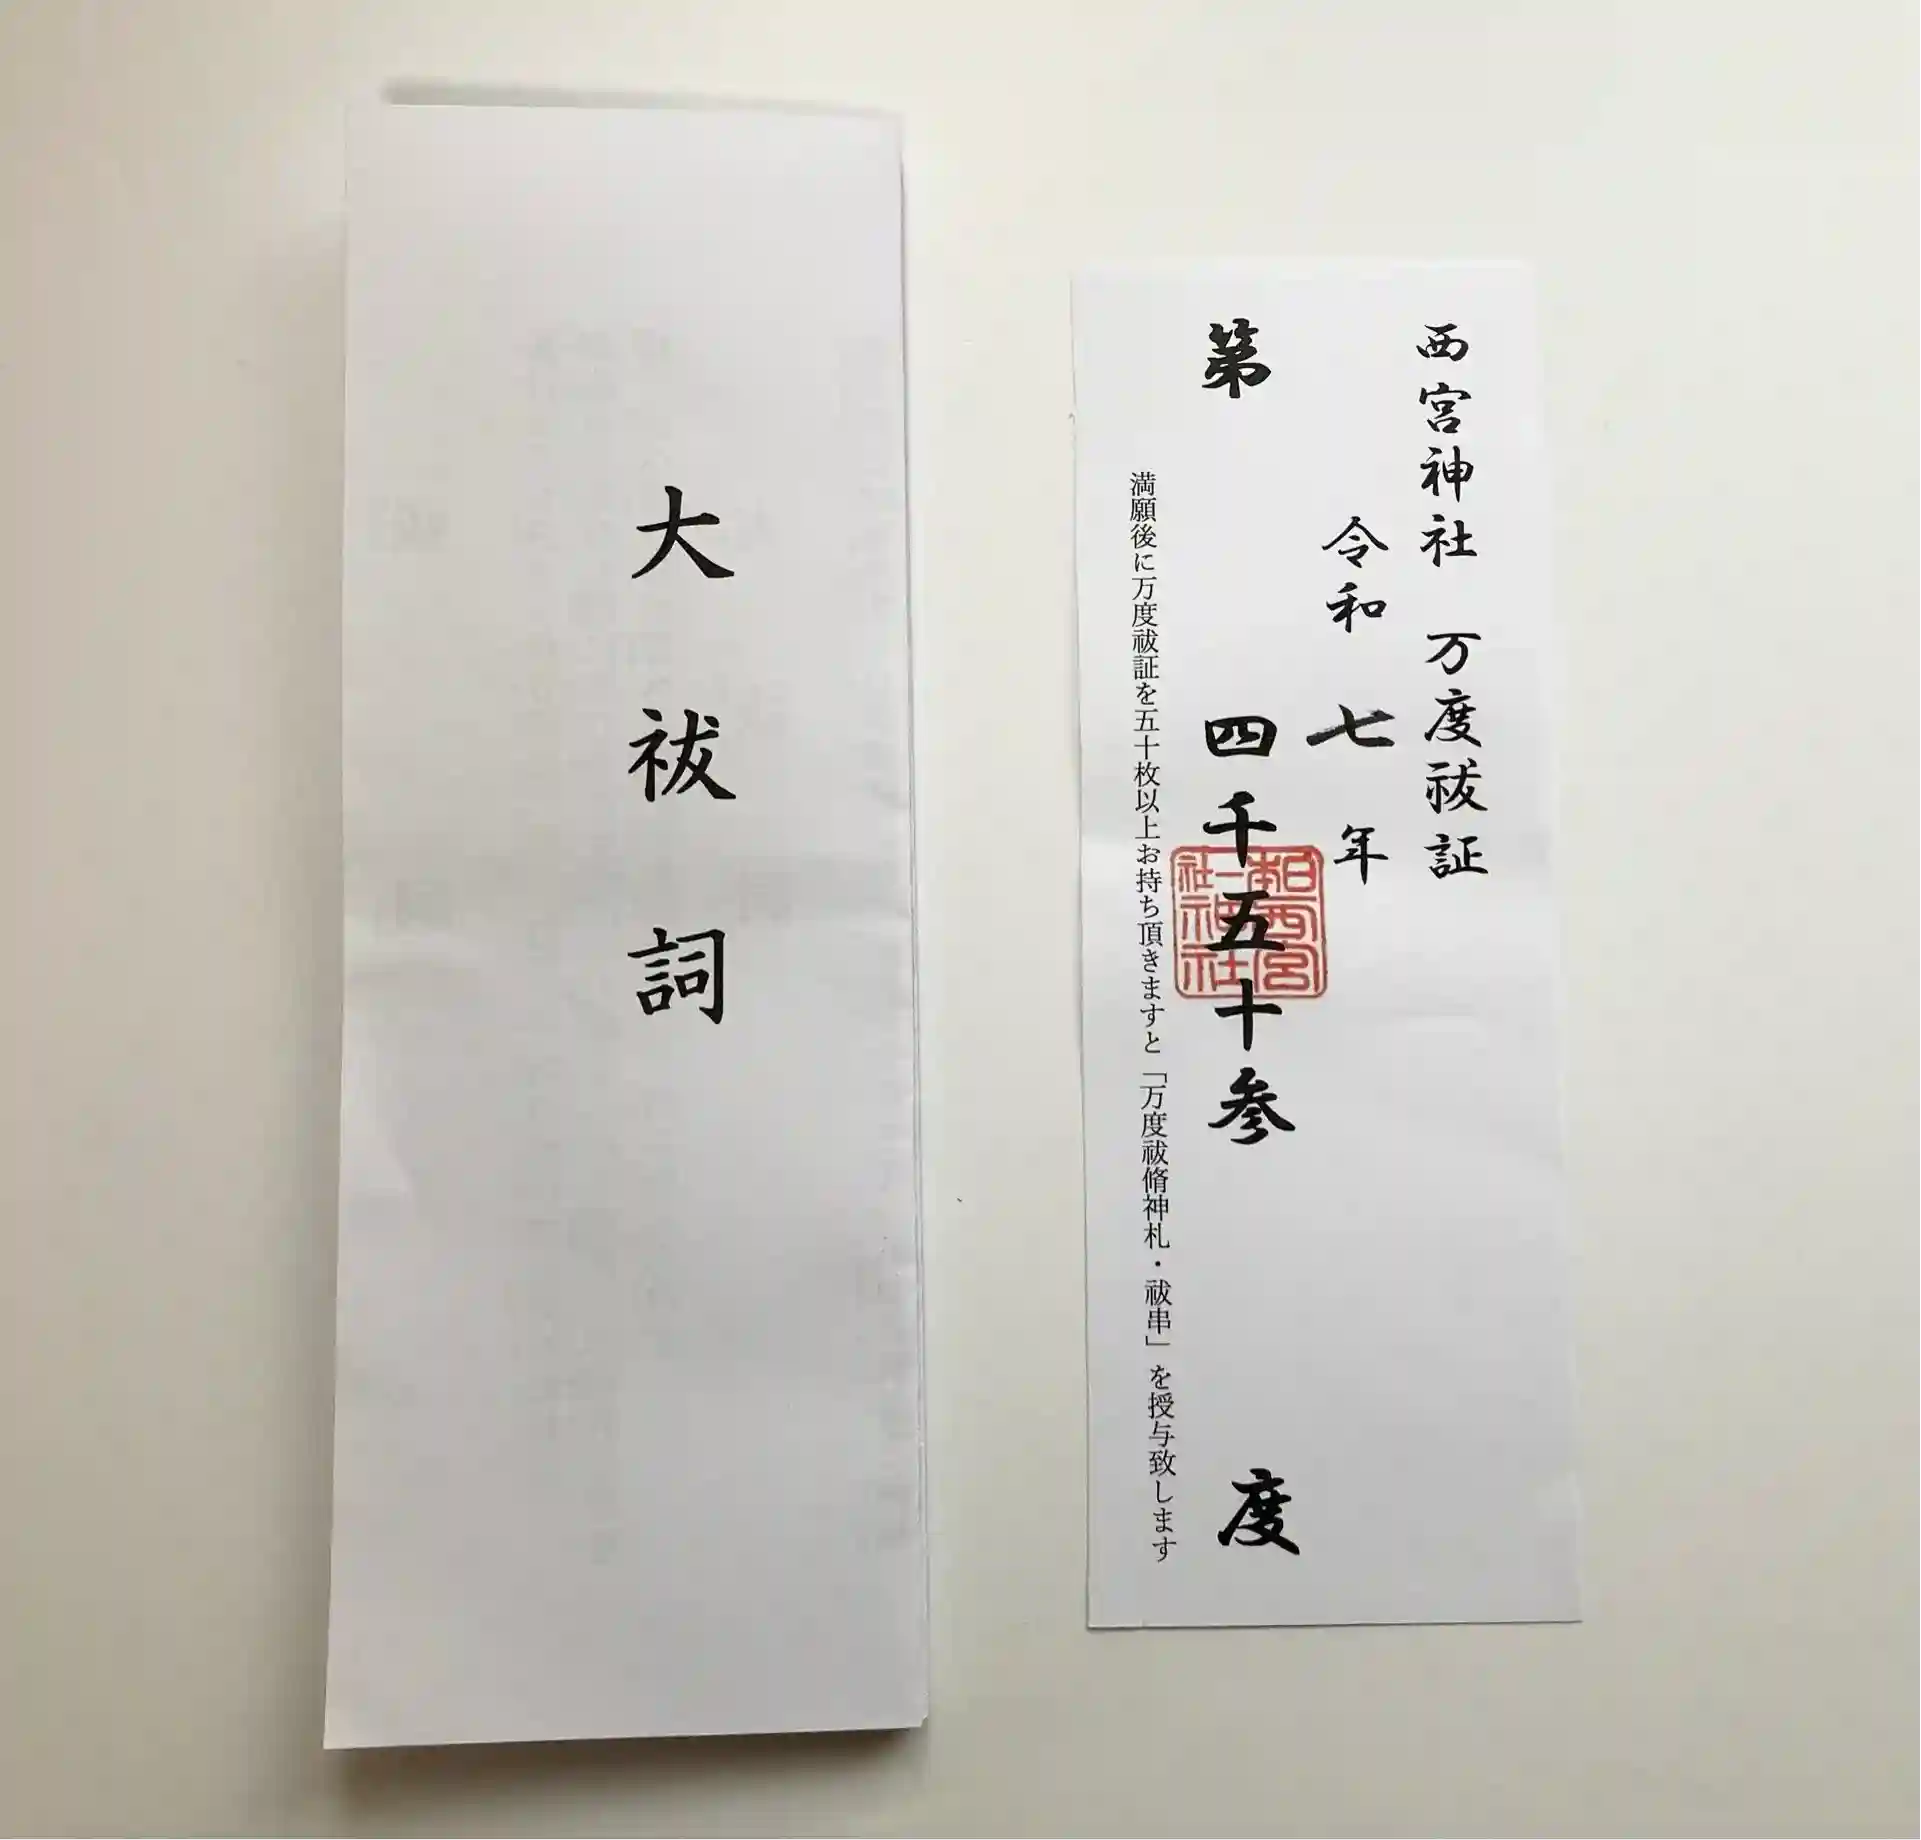 大祓詞
西宮神社 万度祓証
令和 七 年
第 四千五十参 度
満願後に万度祓証を五十枚以上お持ち頂きますと「万度祓脩神札・祓串」を授与致します